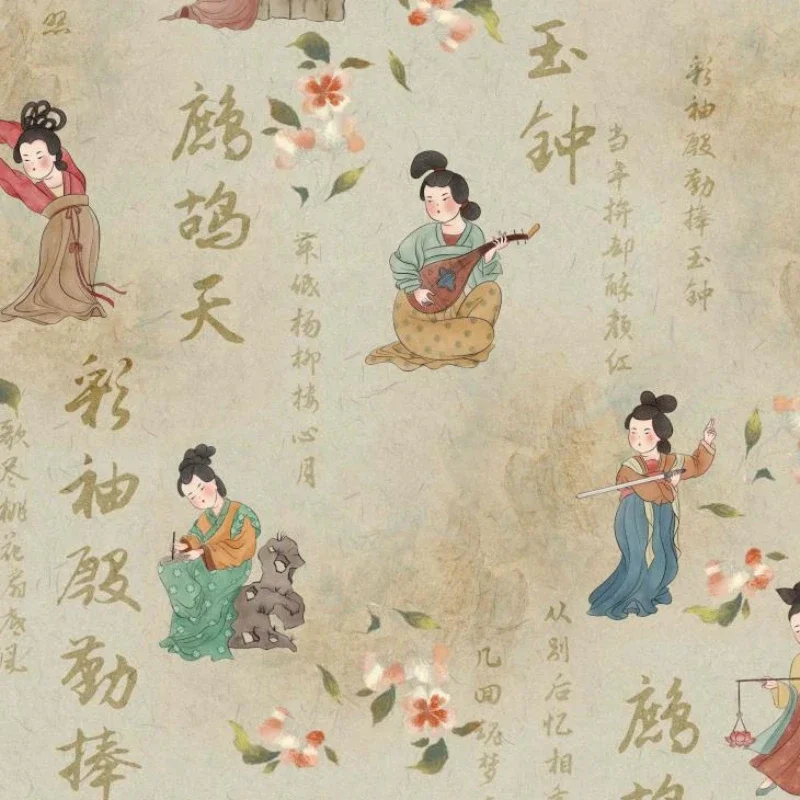 彩袖殷勤捧玉钟
当年拚却醉颜红
玉钟
舞低杨柳楼心月
鹧鸪天
彩袖殷勤捧
照
歌尽桃花扇底风
鹧鸪
从别后忆相
几回魂梦